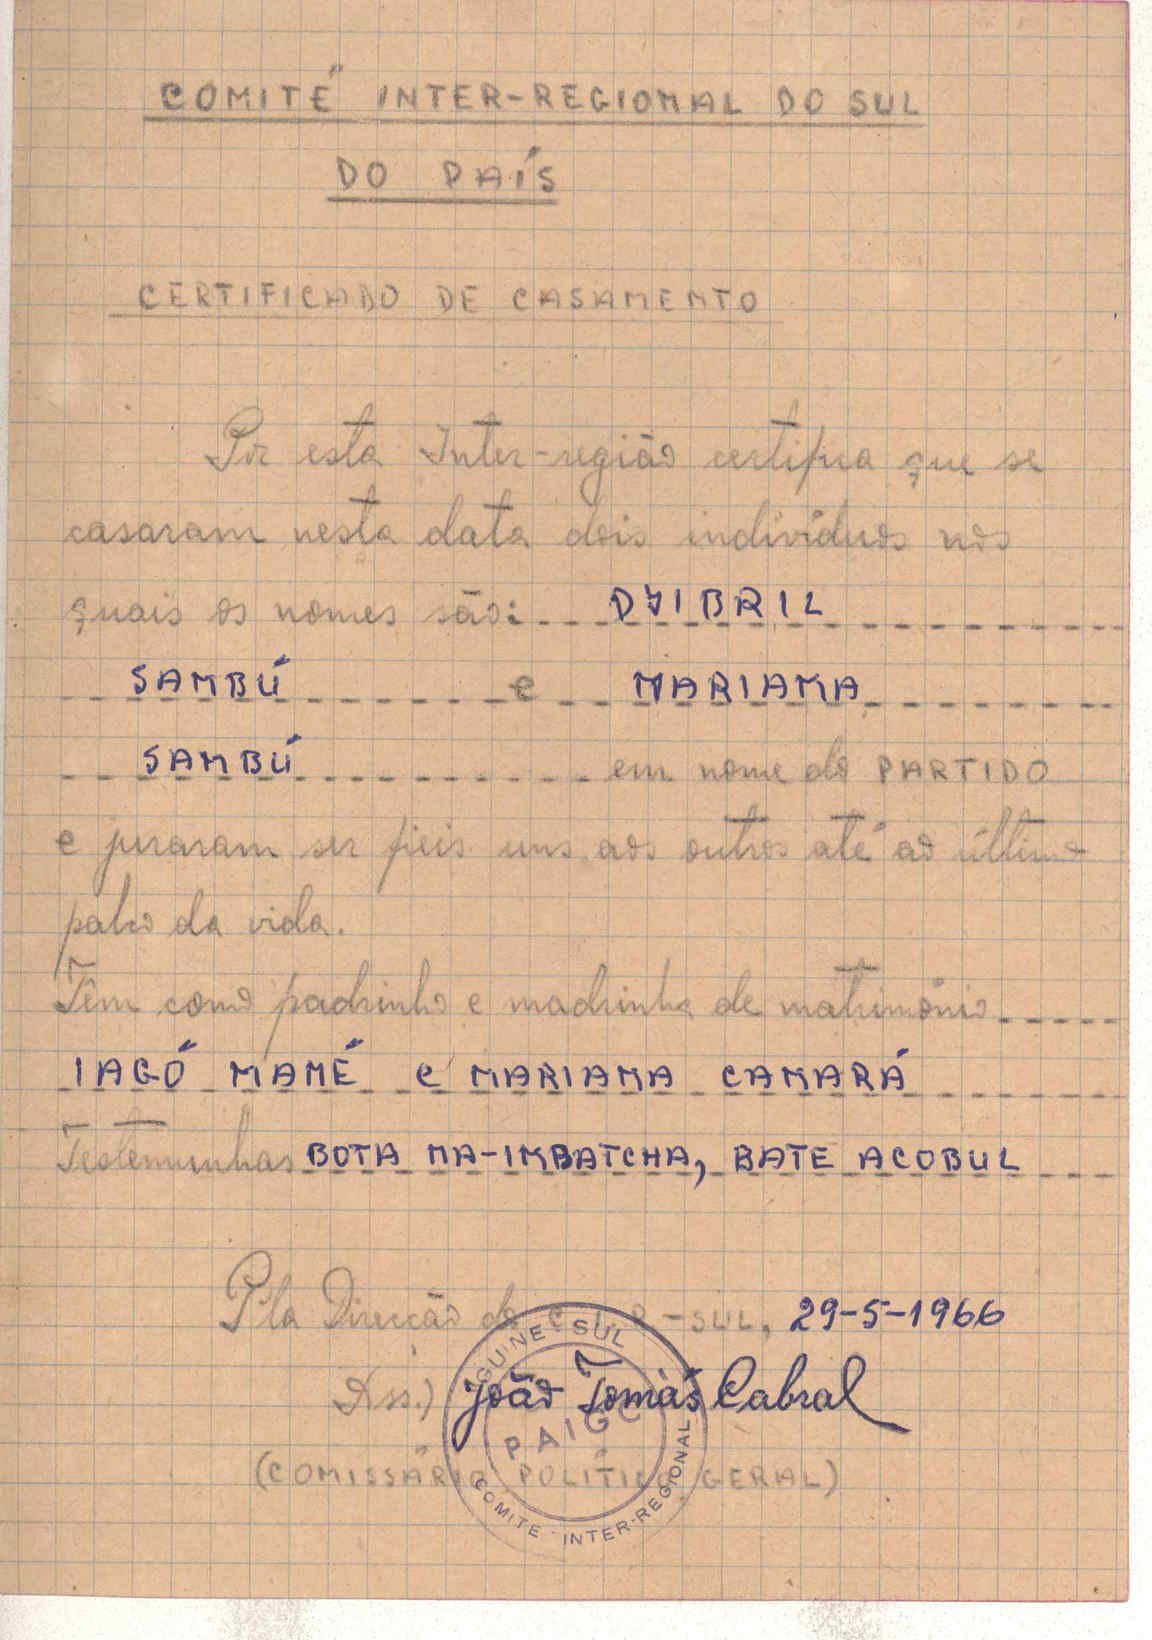 COMITÉ INTER-REGIONAL DO SUL
DO PAÍS
CERTIFICADO DE CASAMENTO
Por esta Inter-região certifica que se
casaram nesta data dois indivíduos nos
quais os nomes são: DJIBRIL
SAMBÚ e MARIAMA
SAMBÚ em nome do PARTIDO
e juraram ser fieis uns aos outros até ao último
da vida.
Têm como padrinho e madrinha de matrimónio
IAGÓ MAMÉ e MARIAMA CAMARÁ
Testemunhas BOTA NA-IMBATCHA, BATE ACOBUL
P'la Direcção do C.I.R-SUL, 29-5-1966
Ass.) João Tomás Cabral
(COMISSÁRIO POLÍTICO GERAL)
GUINÉ SUL
PAIGC
COMITE INTER-REGIONAL